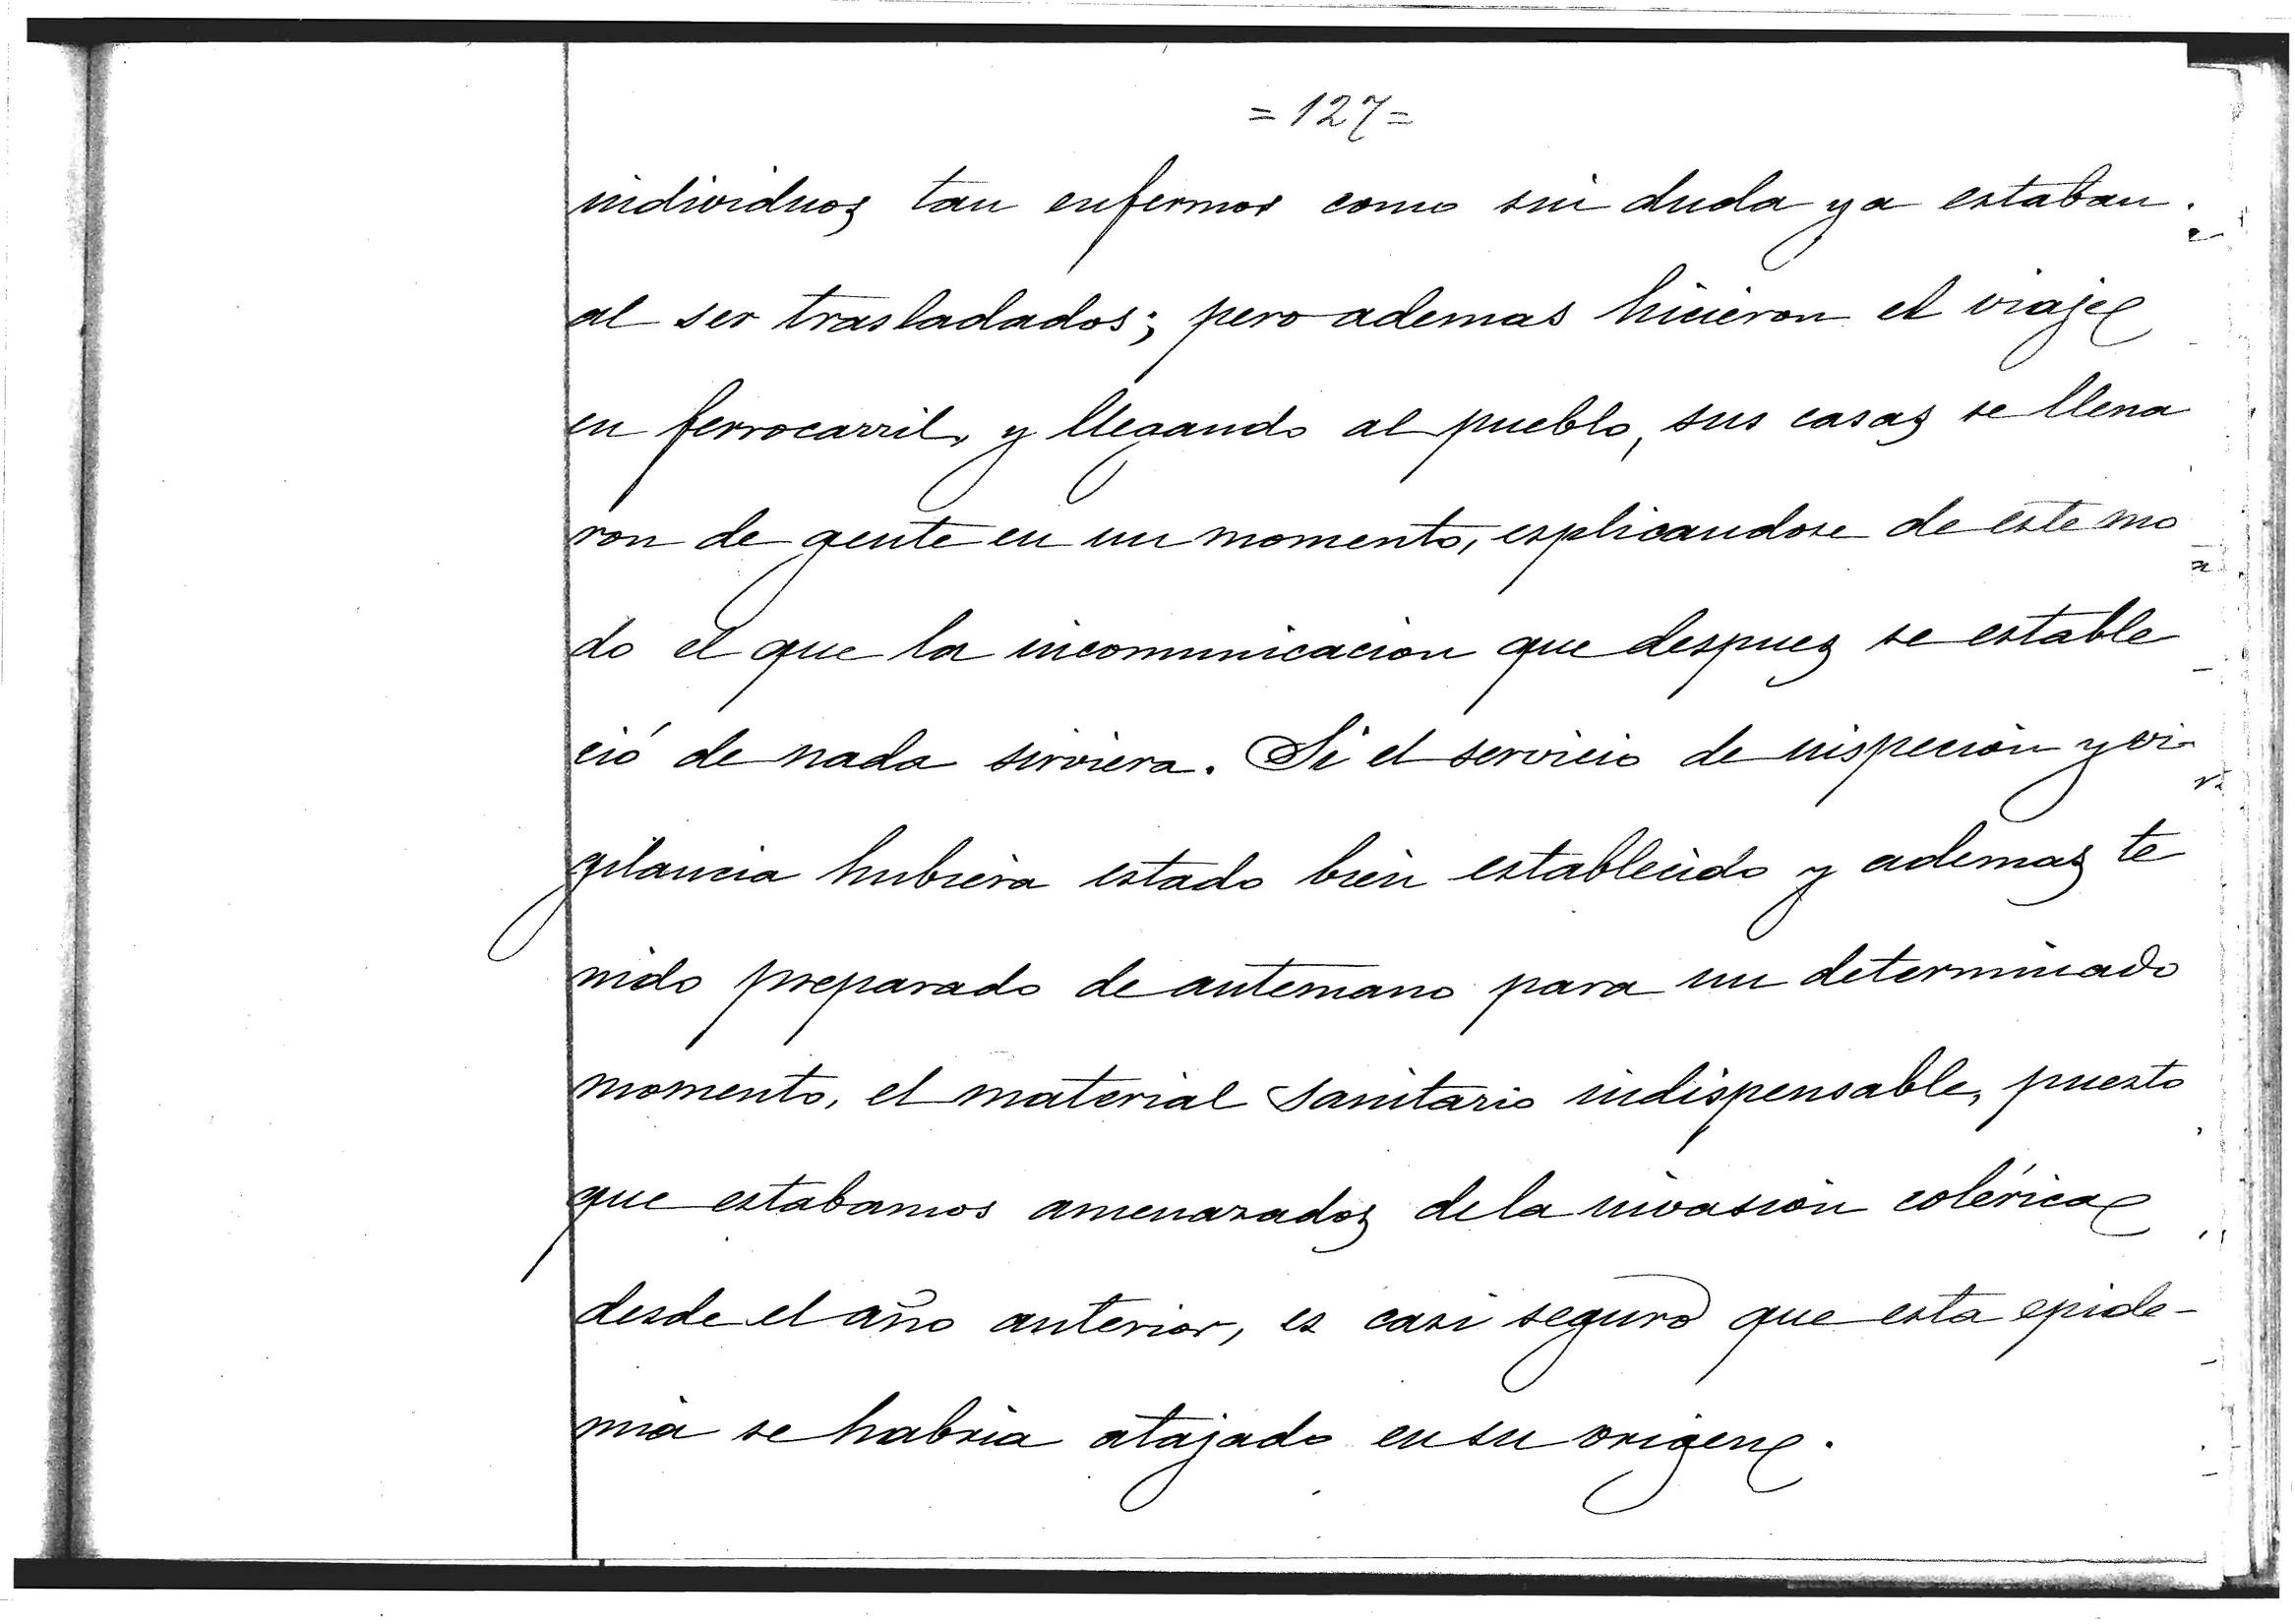 =127=
individuos tan enfermos como sin duda ya estaban
al ser trasladados; pero ademas hicieron el viaje
en ferrocarril, y llegando al pueblo, sus casas se llena
ron de gente en un momento, esplicandose de este mo
do el que la incomunicacion que despues se estable
ció de nada sirviera. Si el servicio de inspeción y vi-
gilancia hubiera estado bien establecido y ademas te
nido preparado de antemano para un determinado
momento, el material sanitario indispensable, puesto
que estabamos amenazados de la invasión colérica
desde el año anterior, es casi seguro que esta epide-
mia se habria atajado en su origen.